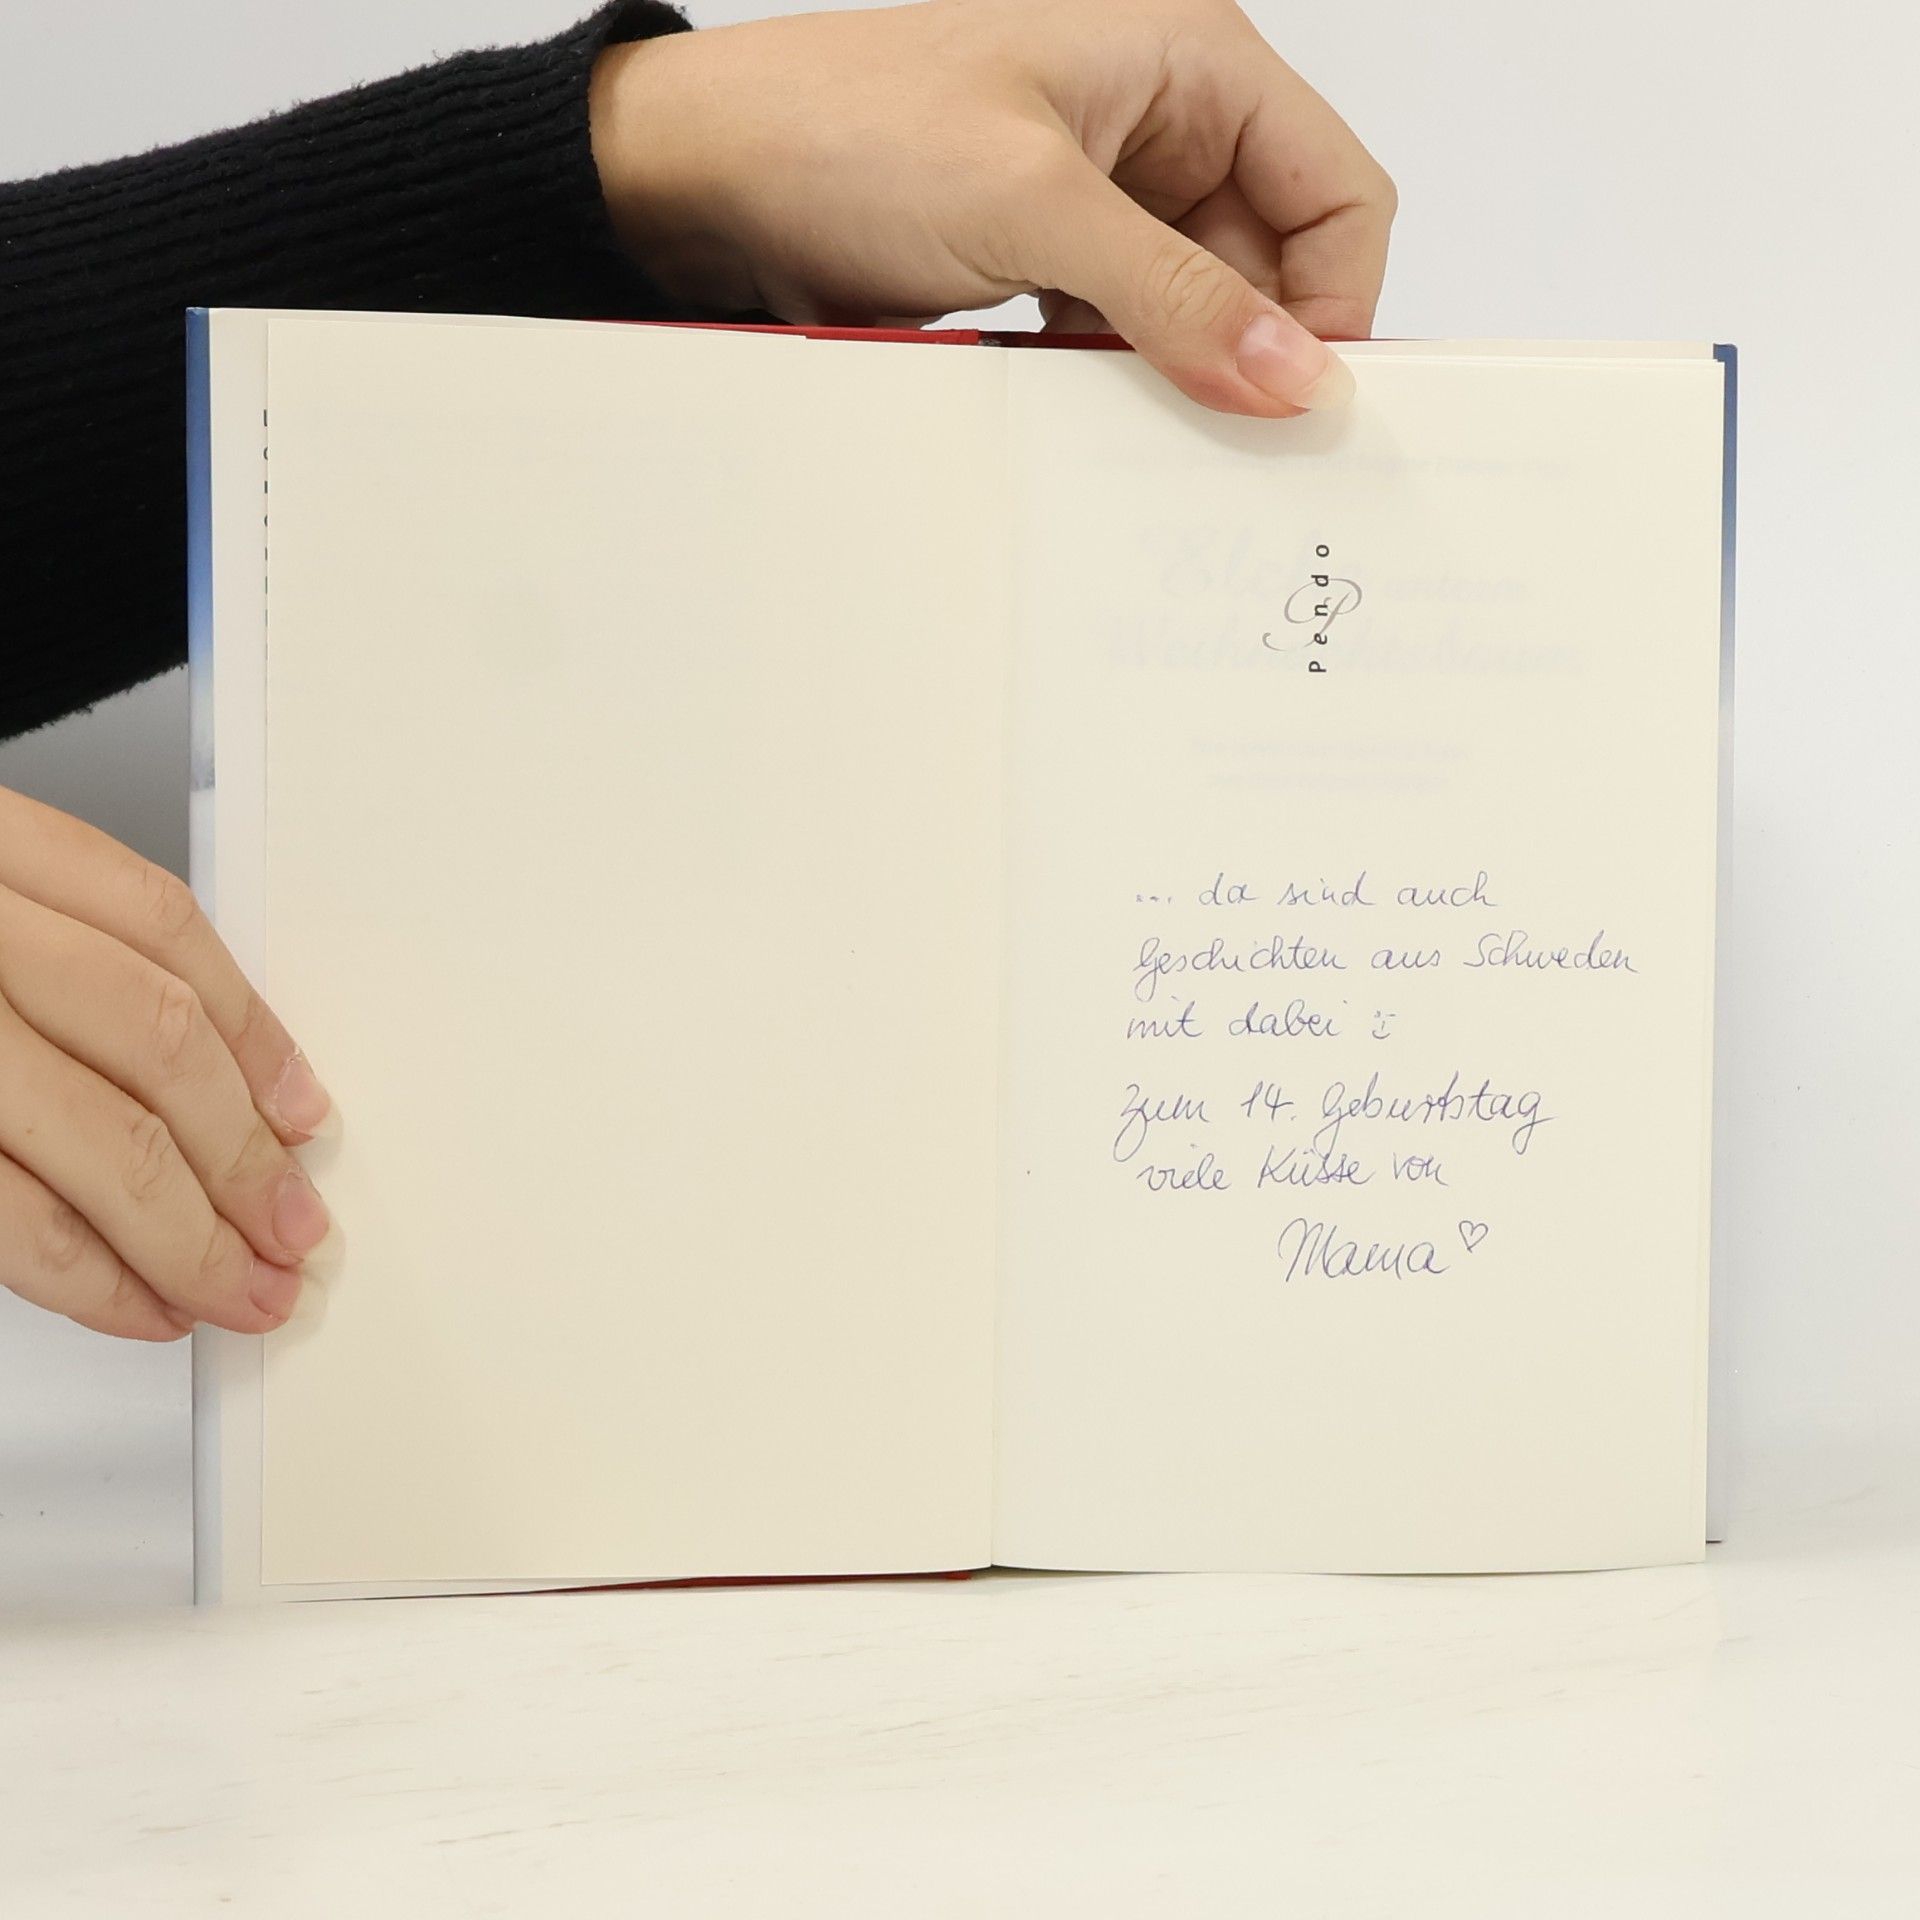 Pendo
Elche unterm
Weihnachtsbaum
... da sind auch
Geschichten aus Schweden
mit dabei :)
Zum 14. Geburtstag
viele Küsse von
Mama ♡